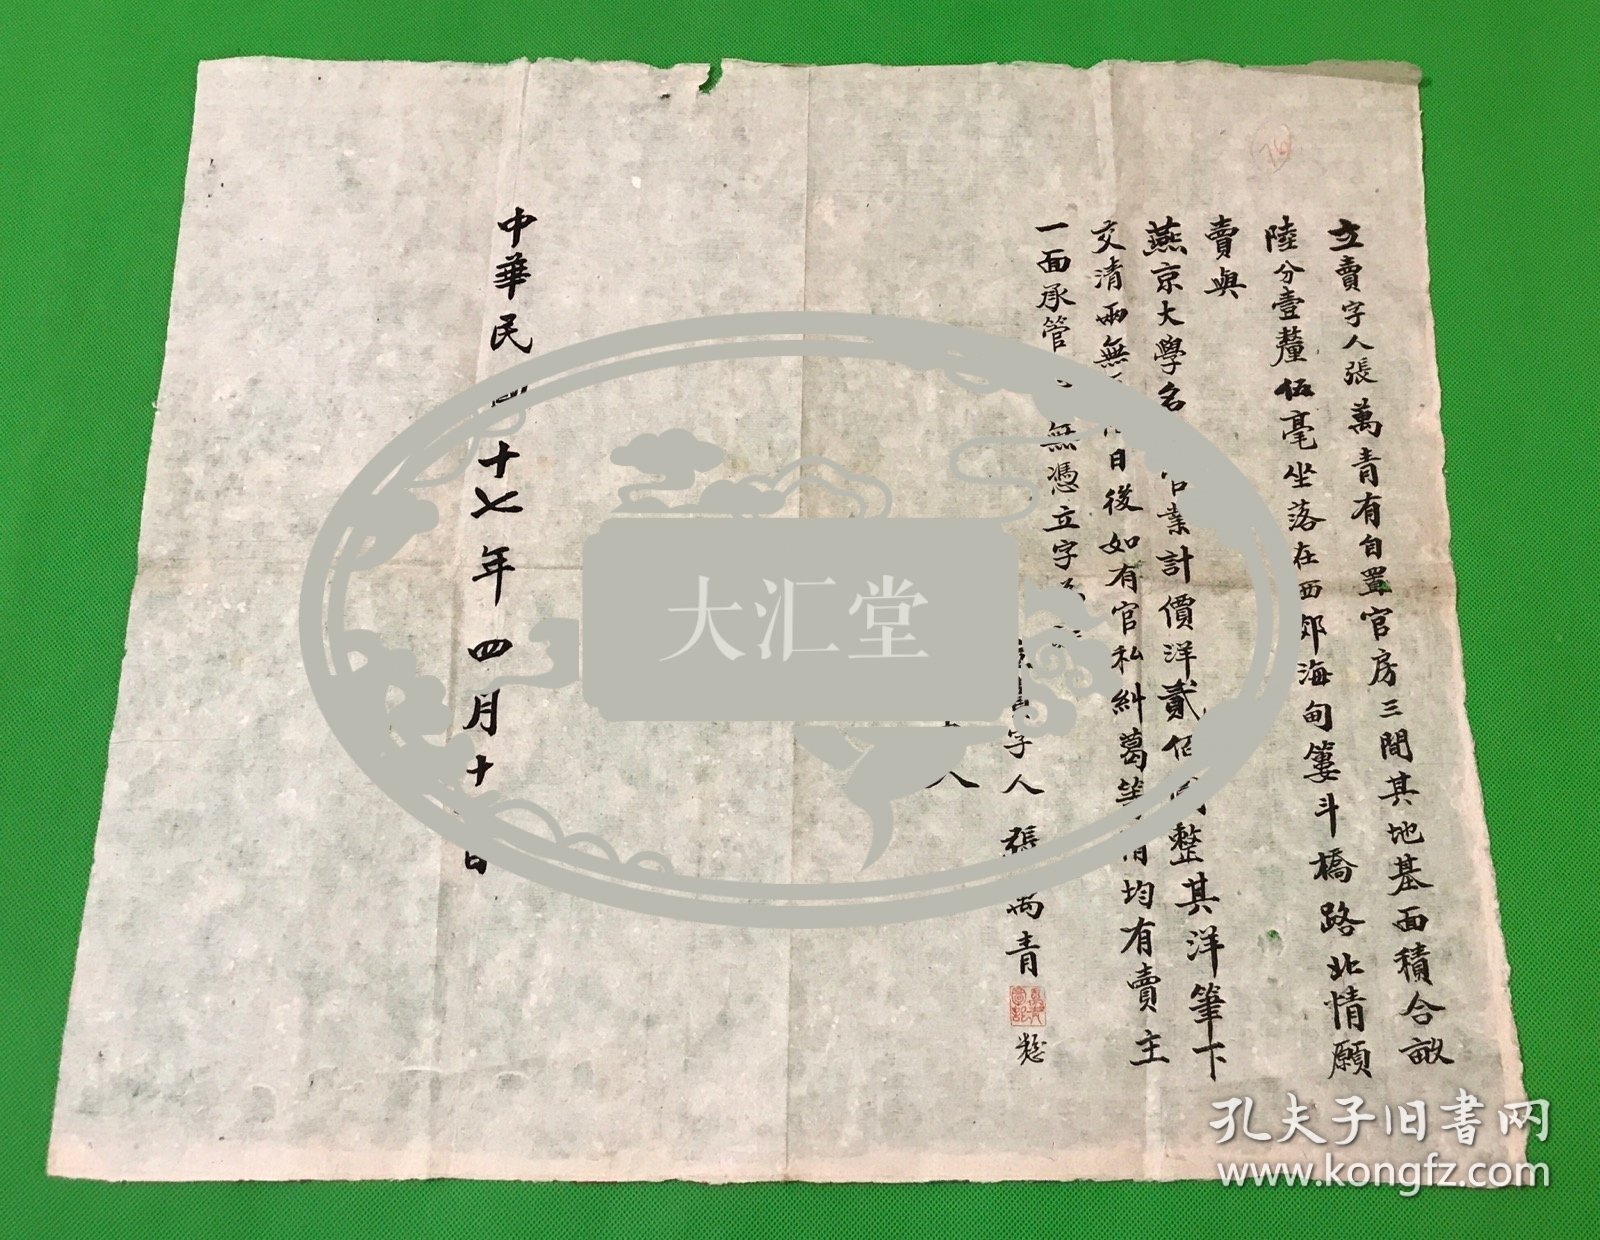 立賣字人張萬青有自置官房三間其地基面積合畝
陸分壹釐伍毫坐落在西郊海甸簍斗橋路北情願
賣與
燕京大學名 業計價洋貳佰 整其洋筆下
交清兩無 日後如有官私糾葛等 均有賣主
一面承管 無憑立字
字人 張 青
人
中華民國十七年四月十 日
大汇堂
孔夫子旧书网
www.kongfz.com